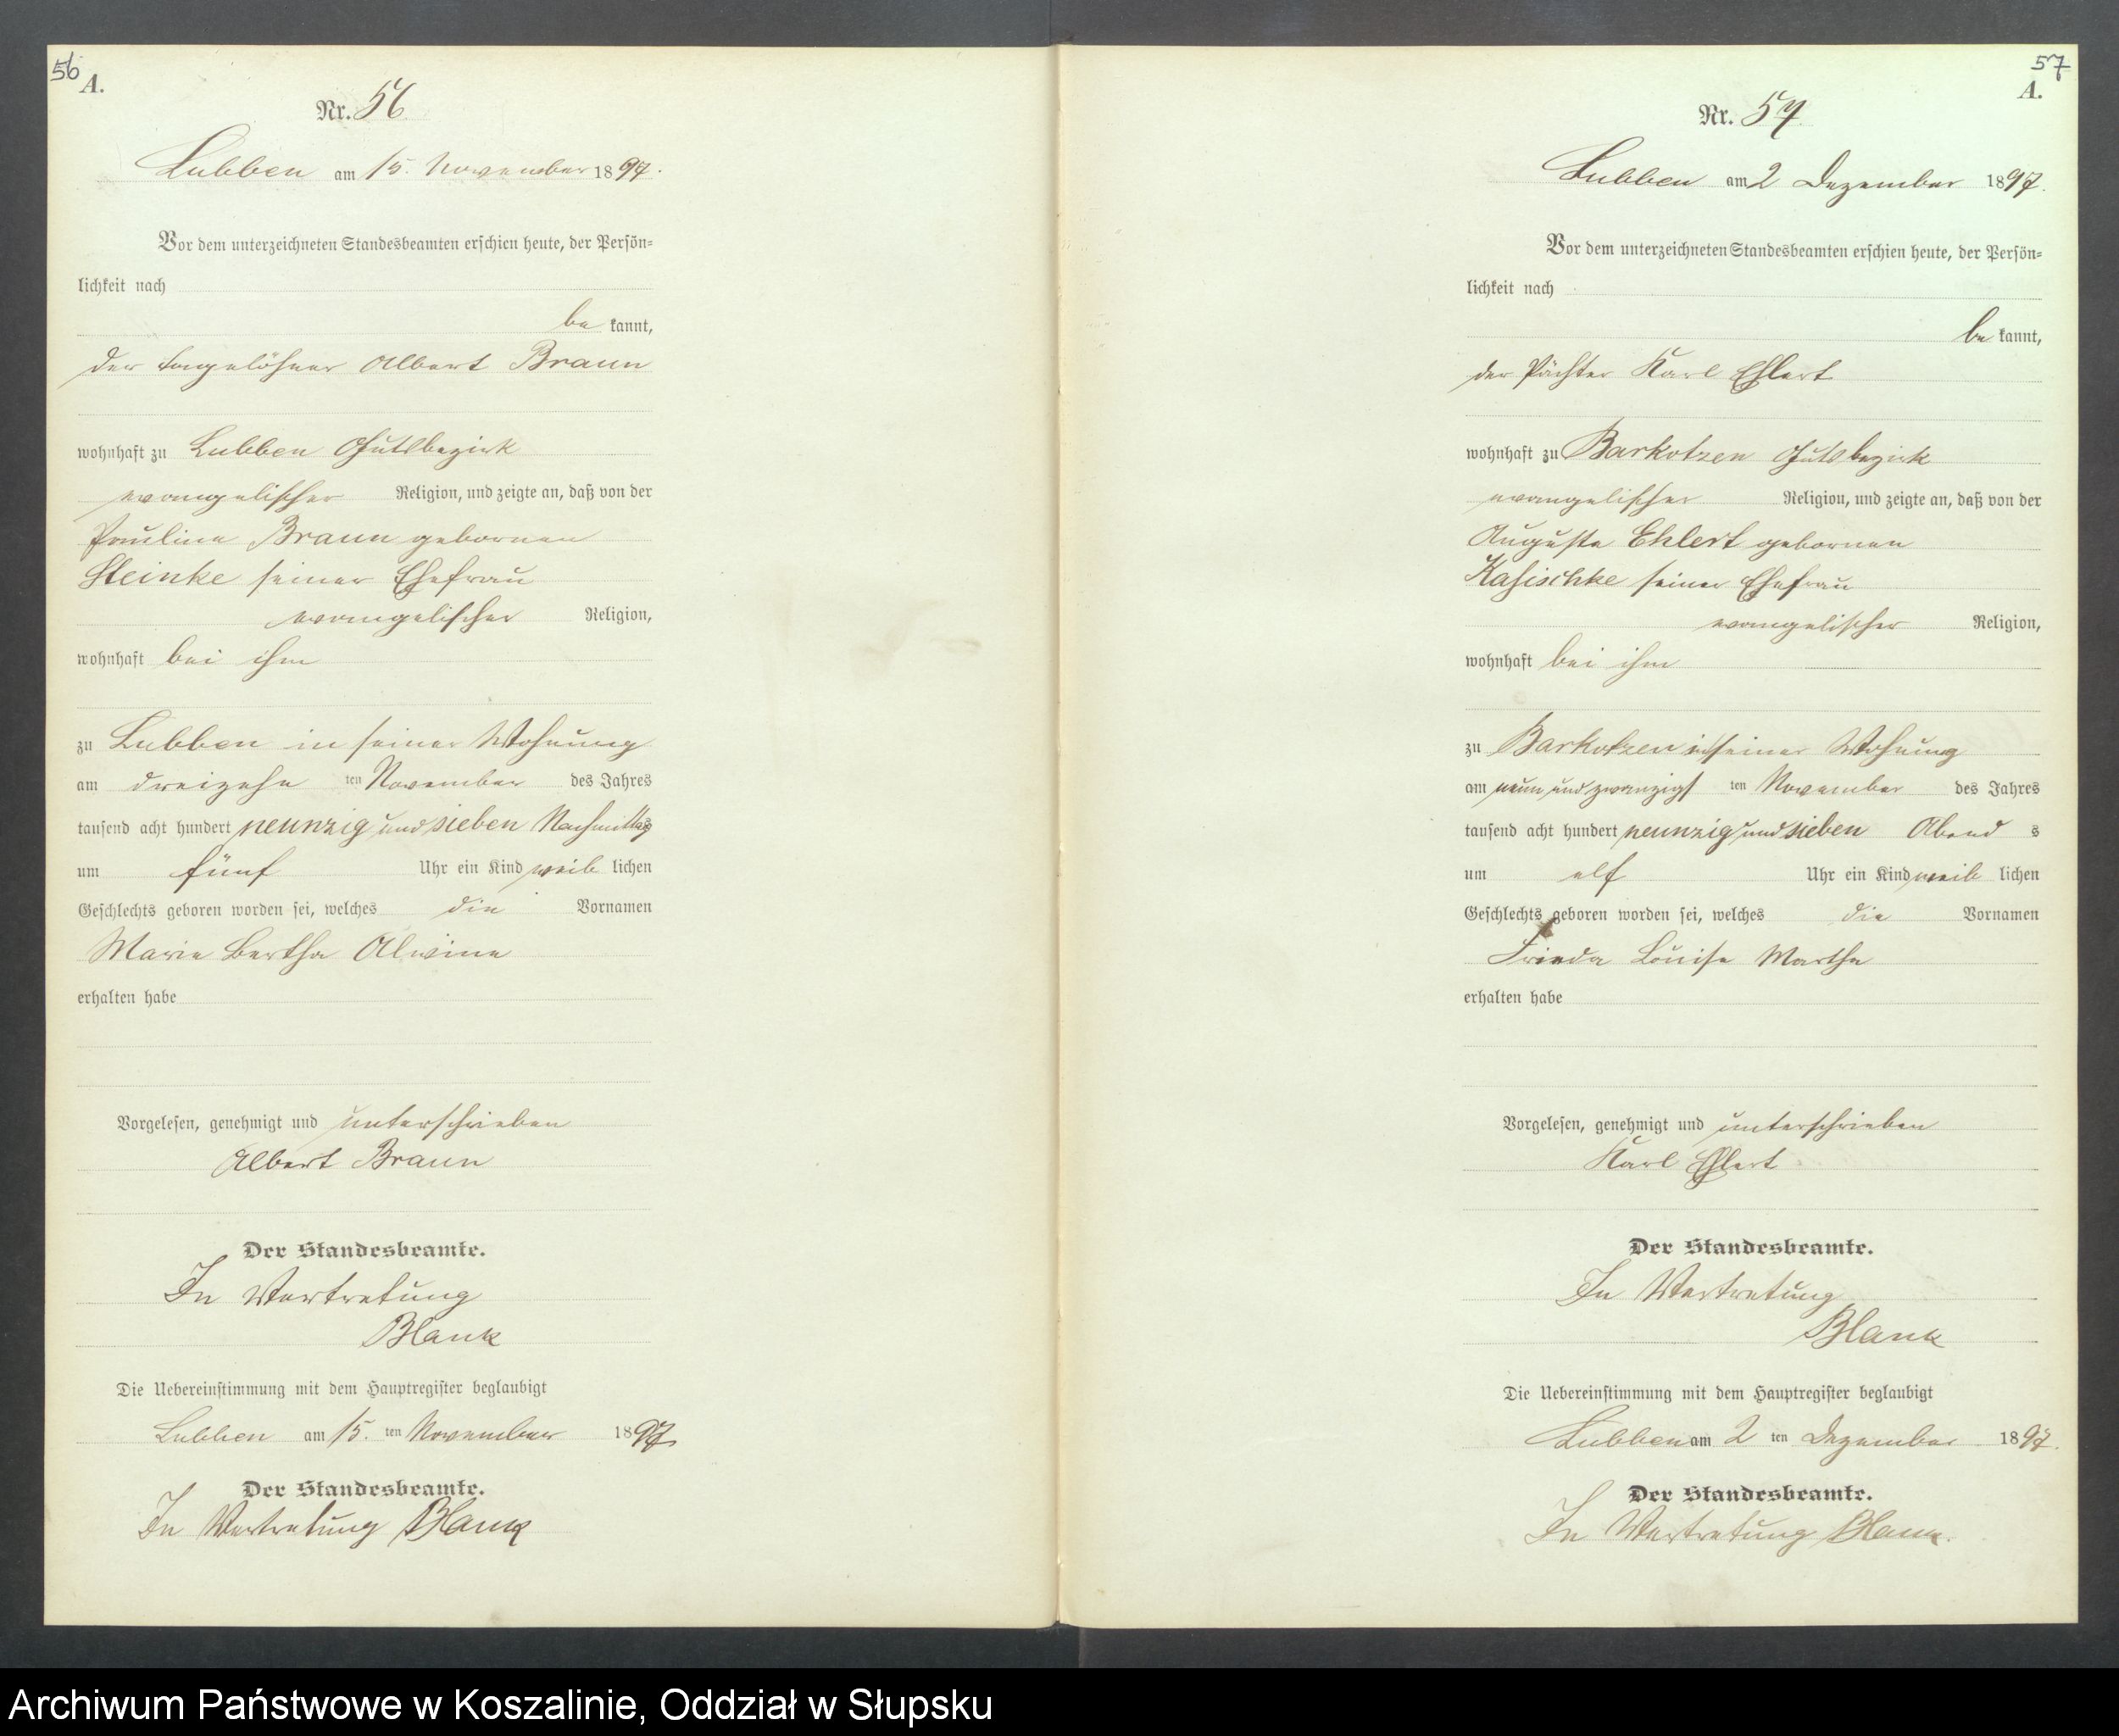 56
A.
Nr. 56
Lubben am 15. November 1897.
Vor dem unterzeichneten Standesbeamten erschien heute, der Persön=
lichkeit nach
be kannt,
der Tagelöhner Albert Braun
wohnhaft zu Lubben Gutsbezirk
evangelischer Religion, und zeigte an, daß von der
Pauline Braun gebornen
Steinke seiner Ehefrau
evangelischer Religion,
wohnhaft bei ihm
zu Lubben in seiner Wohnung
am dreizehn ten November des Jahres
tausend acht hundert neunzig und sieben Nachmittags
um fünf Uhr ein Kind weib lichen
Geschlechts geboren worden sei, welches die Vornamen
Marie Bertha Alwine
erhalten habe
Vorgelesen, genehmigt und unterschrieben
Albert Braun
Der Standesbeamte.
In Vertretung
Blank
Die Uebereinstimmung mit dem Hauptregister beglaubigt
Lubben am 15. ten November 1897
Der Standesbeamte.
In Vertretung Blank
57
A.
Nr. 57.
Lubben am 2 Dezember 1897.
Vor dem unterzeichneten Standesbeamten erschien heute, der Persön=
lichkeit nach
be kannt,
der Pächter Karl Ehlert
wohnhaft zu Barkotzen Gutsbezirk
evangelischer Religion, und zeigte an, daß von der
Auguste Ehlert gebornen
Kasischke seiner Ehefrau
evangelischer Religion,
wohnhaft bei ihm
zu Barkotzen in seiner Wohnung
am neun und zwanzigs ten November des Jahres
tausend acht hundert neunzig und sieben Abend s
um elf Uhr ein Kind weib lichen
Geschlechts geboren worden sei, welches die Vornamen
Frieda Louise Martha
erhalten habe
Vorgelesen, genehmigt und unterschrieben
Karl Ehlert
Der Standesbeamte.
In Vertretung
Blank
Die Uebereinstimmung mit dem Hauptregister beglaubigt
Lubben am 2 ten Dezember 1897.
Der Standesbeamte.
In Vertretung Blank.
Archiwum Państwowe w Koszalinie, Oddział w Słupsku